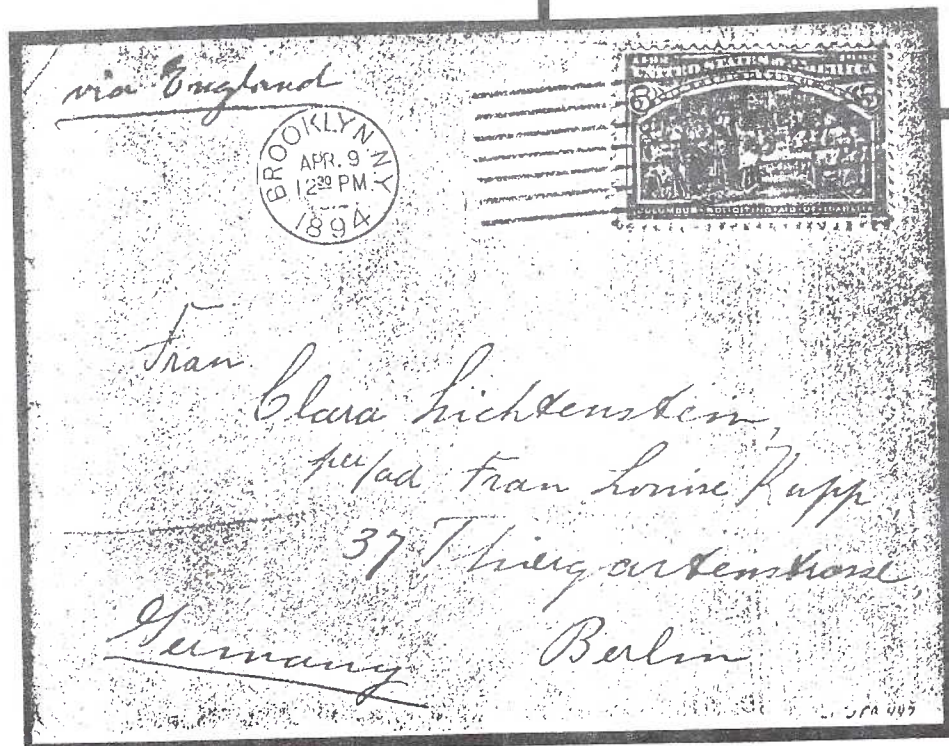 via England
BROOKLYN N Y
APR. 9
12 30 PM
1894
UNITED STATES OF AMERICA
5 5
COLUMBUS SOLICITING AID OF ISABELLA
Frau
Clara Lichtenstein,
per/ad Frau Louise Rupp,
37 Thiergartenstrasse,
Berlin
Germany